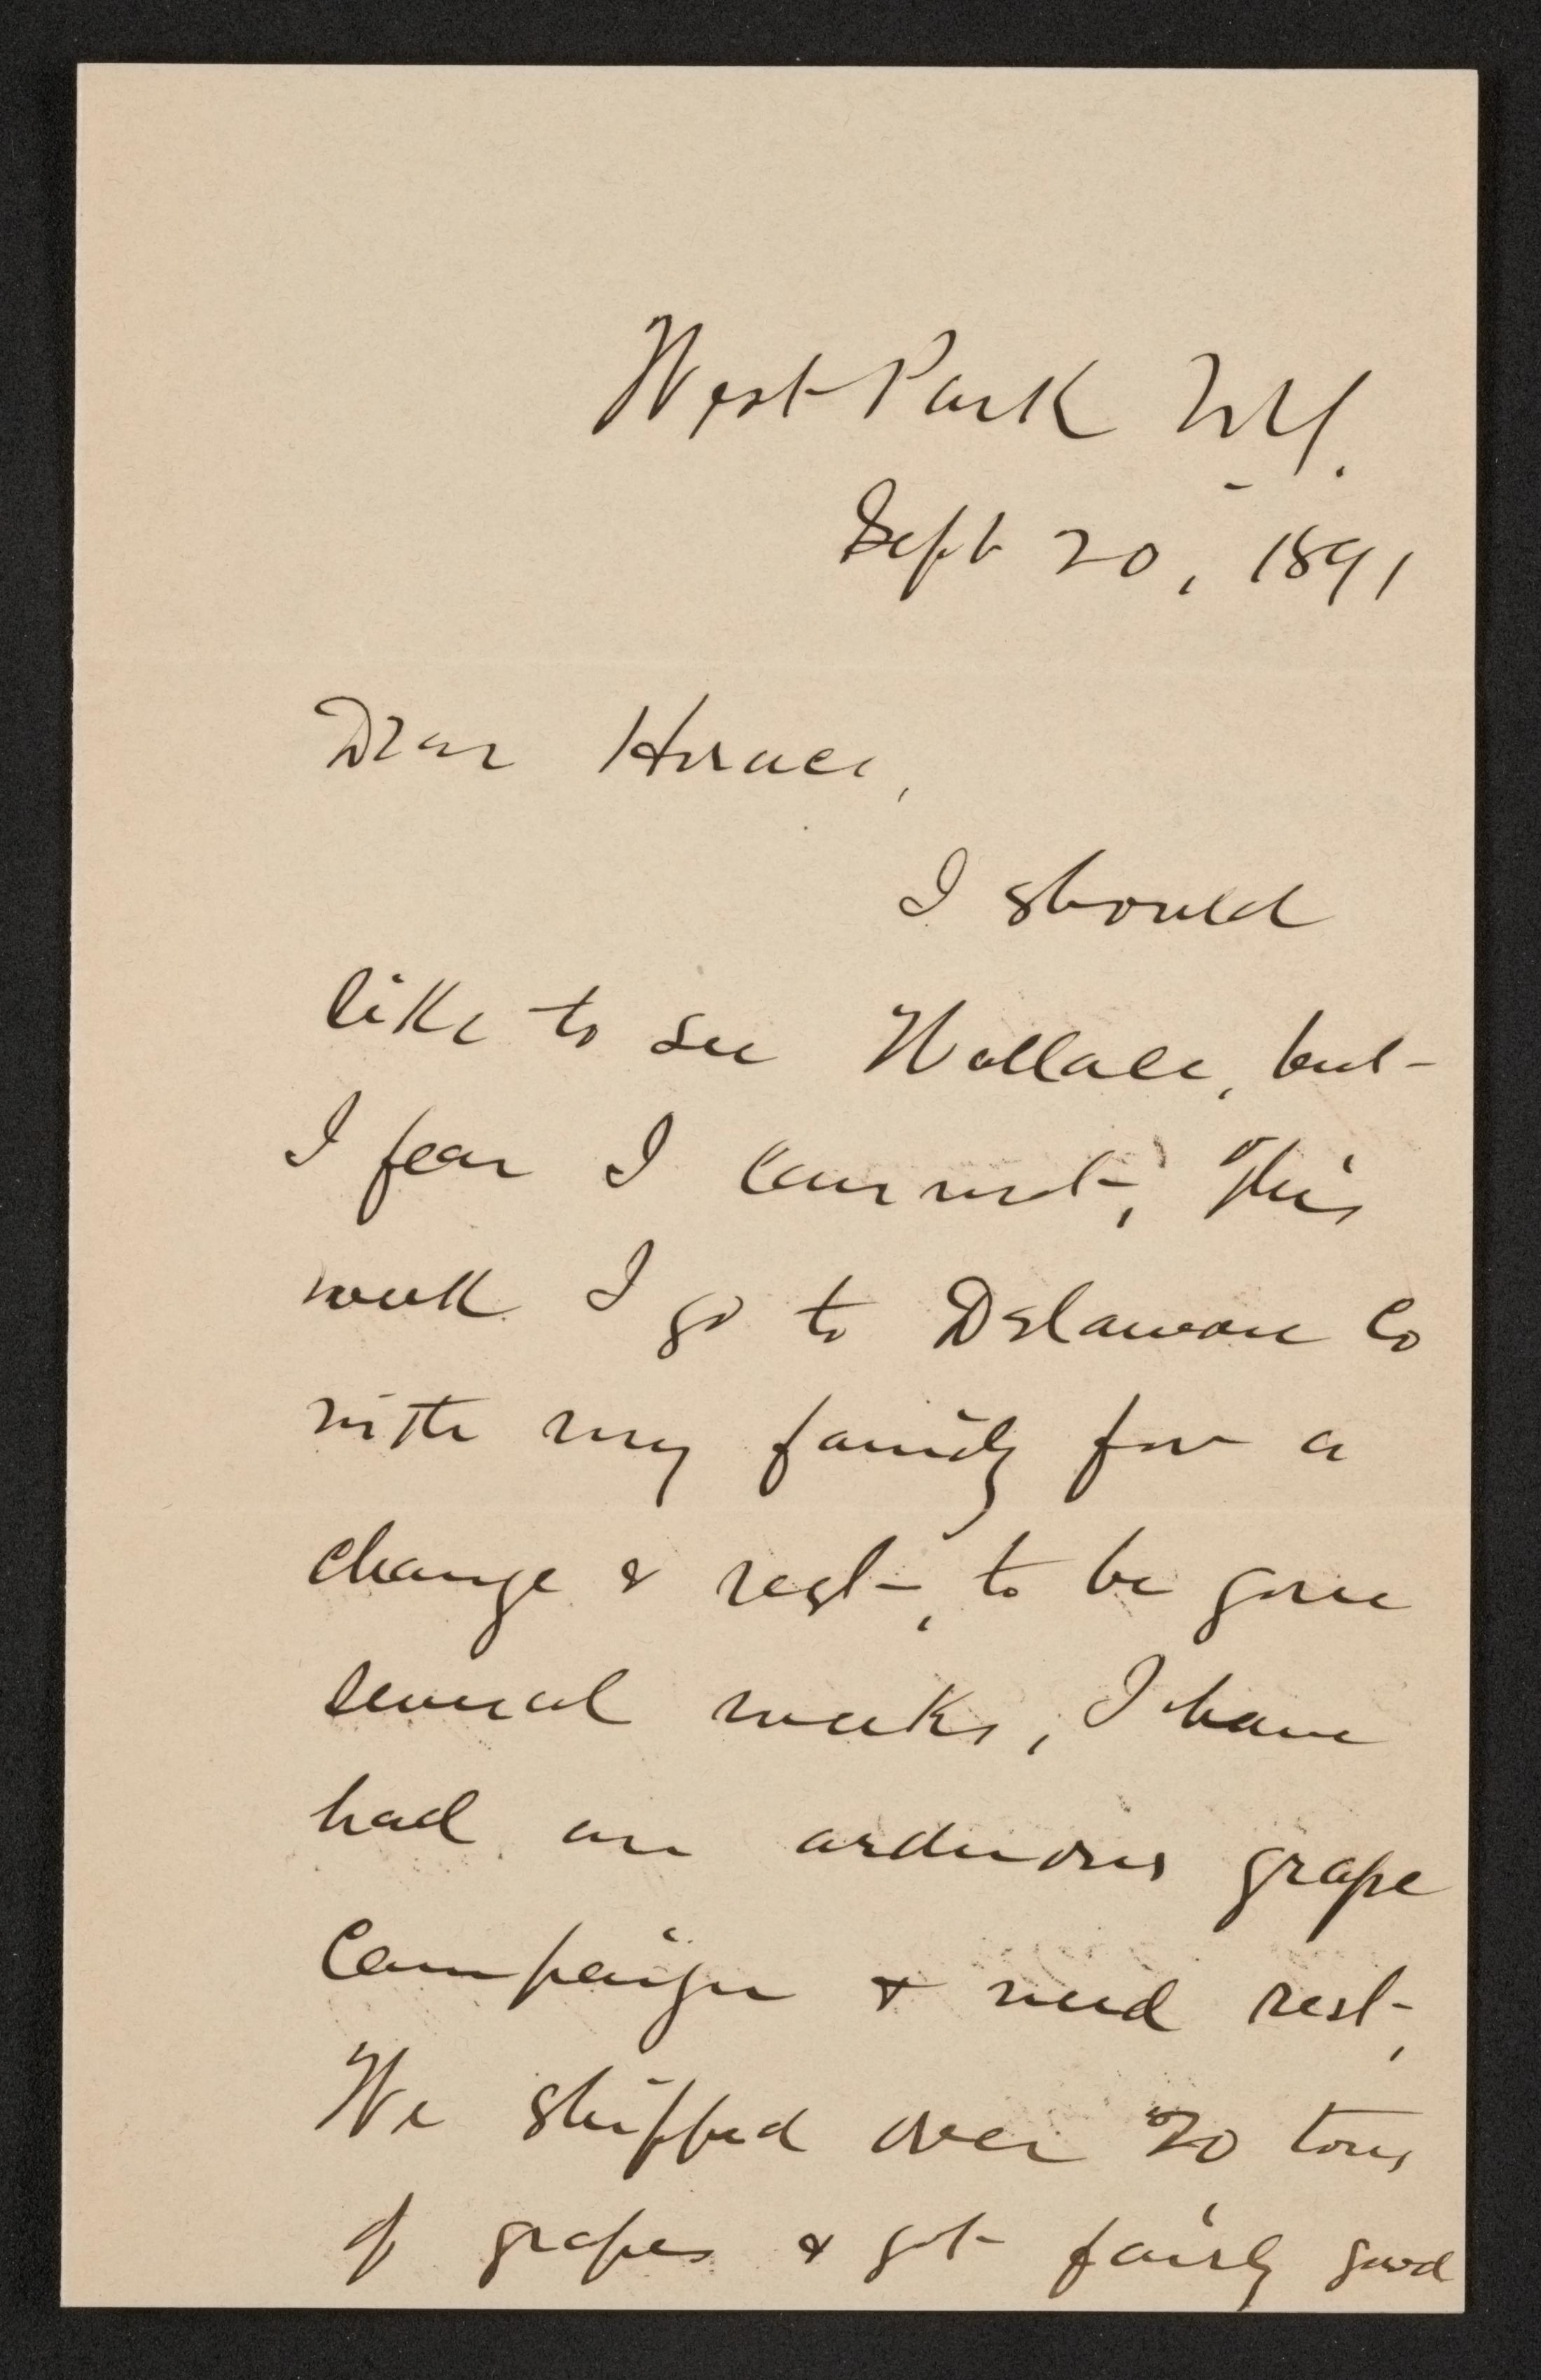 West Park N.Y.
Sept 20, 1891
Dear Horace,
I should
like to see Wallace, but
I fear I cannot; This
week I go to Delaware Co
with my family for a
change & rest, to be gone
several weeks, I have
had an arduous grape
campaign & need rest,
We shipped over 20 tons
of grapes & got fairly good